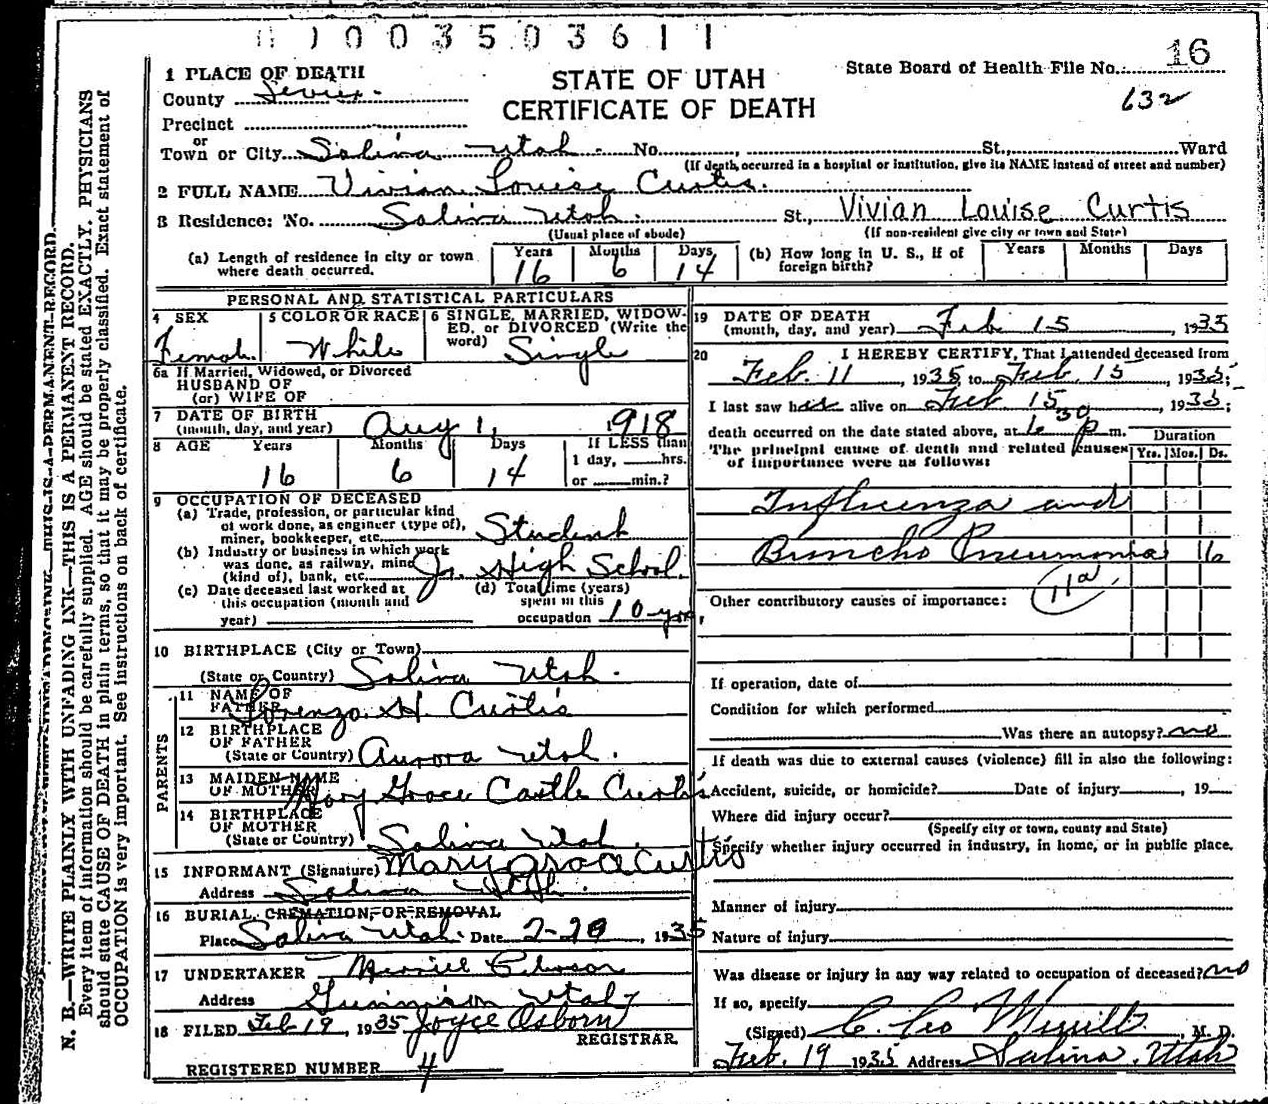 003503611
16
1 PLACE OF DEATH
STATE OF UTAH
State Board of Health File No.
County Sevier
CERTIFICATE OF DEATH
632
Precinct
or
Town or City Salina Utah No. St., Ward
(If death occurred in a hospital or institution, give its NAME instead of street and number)
2 FULL NAME Vivian Louise Curtis.
3 Residence: No. Salina Utah. St., Vivian Louise Curtis
(Usual place of abode) (If non-resident give city or town and State)
(a) Length of residence in city or town where death occurred. Years 16 Months 6 Days 14 (b) How long in U. S., if of foreign birth? Years Months Days
PERSONAL AND STATISTICAL PARTICULARS
4 SEX Female
5 COLOR OR RACE White
6 SINGLE, MARRIED, WIDOWED, or DIVORCED (Write the word) Single
6a If Married, Widowed, or Divorced
HUSBAND OF
(or) WIFE OF
7 DATE OF BIRTH
(month, day, and year) Aug 1, 1918
8 AGE Years 16 Months 6 Days 14 If LESS than 1 day, hrs. or min.?
9 OCCUPATION OF DECEASED
(a) Trade, profession, or particular kind
of work done, as engineer (type of),
miner, bookkeeper, etc. Student
(b) Industry or business in which work
was done, as railway, mine
(kind of), bank, etc. Jr. High School.
(c) Date deceased last worked at
this occupation (month and
year)
(d) Total time (years)
spent in this
occupation 10 yrs,
10 BIRTHPLACE (City or Town)
(State or Country) Salina Utah.
PARENTS
11 NAME OF
FATHER Lorenzo H. Curtis
12 BIRTHPLACE
OF FATHER
(State or Country) Aurora Utah.
13 MAIDEN NAME
OF MOTHER Mary Grace Castle Curtis
14 BIRTHPLACE
OF MOTHER
(State or Country) Salina Utah.
15 INFORMANT (Signature) Mary Grace Curtis
Address Salina Utah.
16 BURIAL, CREMATION, OR REMOVAL
Place Salina Utah. Date 2-20, 1935
17 UNDERTAKER Merrill
Address Gunnison Utah
18 FILED Feb 19, 1935 Joyce Osborn
REGISTRAR.
REGISTERED NUMBER 4
19 DATE OF DEATH
(month, day, and year) Feb 15, 1935
20 I HEREBY CERTIFY, That I attended deceased from
Feb. 11, 1935, to Feb. 15, 1935;
I last saw her alive on Feb 15, 1935;
death occurred on the date stated above, at 1:30 p m.
The principal cause of death and related causes
of importance were as follows:
Duration
Yrs. Mos. Ds.
Influenza and
Broncho Pneumonia 16
11a
Other contributory causes of importance:
If operation, date of
Condition for which performed
Was there an autopsy? no
If death was due to external causes (violence) fill in also the following:
Accident, suicide, or homicide? Date of injury, 19
Where did injury occur?
(Specify city or town, county and State)
Specify whether injury occurred in industry, in home, or in public place.
Manner of injury
Nature of injury
Was disease or injury in any way related to occupation of deceased? no
If so, specify
(Signed) C. Leo Merrill, M. D.
Feb. 19 1935 Address Salina, Utah
N. B.—WRITE PLAINLY WITH UNFADING INK—THIS IS A PERMANENT RECORD.
Every item of information should be carefully supplied. AGE should be stated EXACTLY. PHYSICIANS
should state CAUSE OF DEATH in plain terms, so that it may be properly classified. Exact statement of
OCCUPATION is very important. See instructions on back of certificate.